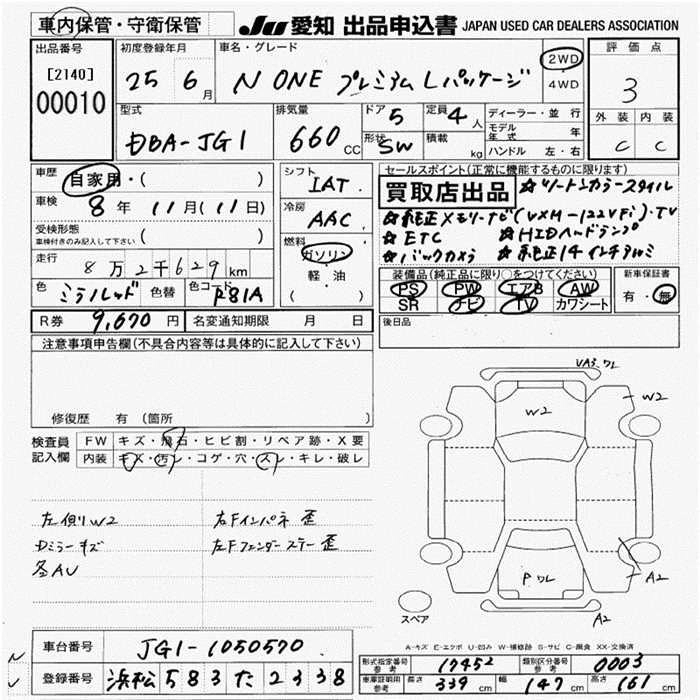 車内保管・守衛保管
JU 愛知 出品申込書 JAPAN USED CAR DEALERS ASSOCIATION
出品番号
[2140]
00010
初度登録年月
25 6月
車名・グレード
N ONE プレミアム L パッケージ
2WD
・
4WD
評価点
3
外装 内装
C C
型式
DBA-JG1
排気量
660 CC
ドア 5
形状 SW
定員 4人
積載 kg
ディーラー・並行
モデル年式 年
ハンドル 左・右
車歴 自家用・( )
車検 8年 11月(11日)
受検形態
車検付きのみ記入して下さい ( )
走行 8万2千629km
色 ミラノレッド 色替 色コード R81A
シフト
IAT
冷房
AAC
燃料
ガソリン
軽・油
( )
セールスポイント(正常に機能するものに限ります)
買取店出品 ☆ツートンカラースタイル
☆純正メモリーナビ(VXM-122VFi)・TV
☆ETC ☆HIDヘッドランプ
☆バックカメラ ☆純正14インチアルミ
装備品(純正品に限り○をつけてください)
PS PW エアB AW
SR ナビ TV カワシート
新車保証書
有・無
R券 9,670円 名変通知期限 月 日
後日品
注意事項申告欄(不具合内容等は具体的に記入して下さい)
修復歴 有 (箇所
検査員記入欄
FW キズ・飛石・ヒビ割・リペア跡・X要
内装 キズ・汚レ・コゲ・穴・スレ・キレ・破レ
左側リW2 右Fインパネ 歪
Dミラーキズ 左Fフェンダーステー歪
各AU
W2
W2
A2
A2
スペア
A-キズ E-エクボ U-凹み W-補修跡 S-サビ C-腐食 XX-交換済
車台番号 JG1-1050570
登録番号 浜松 583 た 2338
型式指定番号 参考 17452 類別区分番号 参考 0003
車庫証明用 参考 長さ 339cm 幅 147cm 高さ 161cm